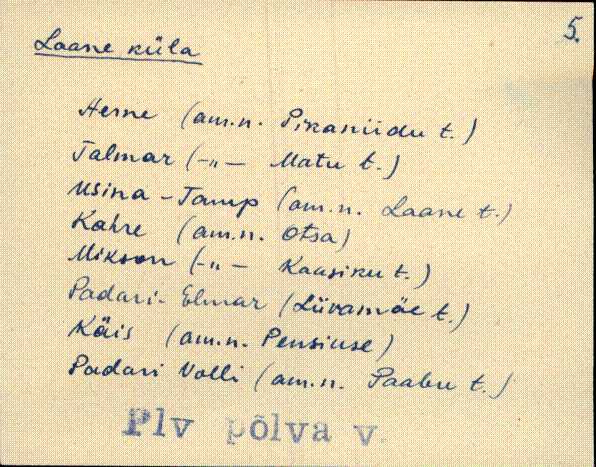 5.
Laane küla
Herne (am.n. Pikaniidu t.)
Talmar (-„- Matu t.)
Usina-Tamp (am.n. Laane t.)
Kahre (am.n. Otsa)
Mikson (-„- Kaasiku t.)
Padari-Elmar (Liivamäe t.)
Käis (am.n. Pensiuse)
Padari Volli (am.n. Paabu t.)
Plv põlva v.